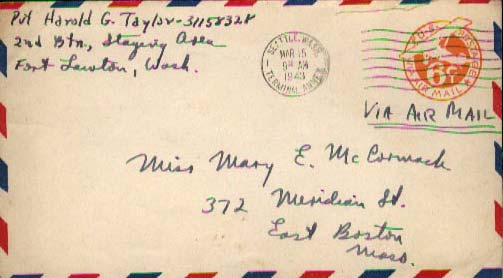 Pvt Harold G. Taylor-31158328
2nd Btn, Staging Area
Fort Lawton, Wash.
SEATTLE, WASH.
MAR 15
9 AM
1943
TERMINAL ANNEX
U.S. POSTAGE
6¢
AIR MAIL
VIA AIR MAIL
Miss Mary E. McCormack
372 Meridian St.
East Boston
Mass.